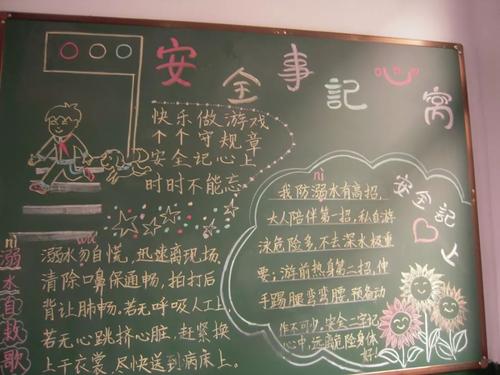 安全事記心窝
快乐做游戏
个个守规章
安全记心上
时时不能忘
ni
我防溺水有高招,
大人陪伴第一招,私自游
泳危险多,不去深水极重
要;游前热身第二招,伸
手踢腿弯弯腰,预备动
作不可少,安全二字记
心中,远离危险身体
好!
安全记心上
ni
溺水自救歌
wu
溺水勿自慌,迅速离现场,
清除口鼻保通畅,拍打后
背让肺畅。若无呼吸人工上
若无心跳挤心脏,赶紧换
上干衣裳,尽快送到病床上。